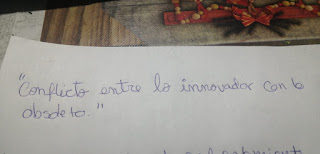 "Conflicto entre lo innovador con lo
obsoleto."